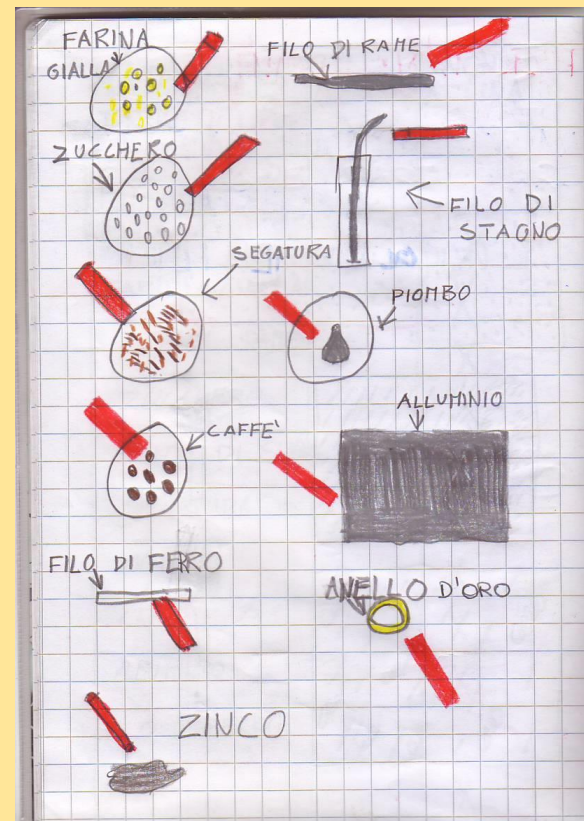 FARINA
GIALLA
FILO DI RAME
ZUCCHERO
FILO DI
STAGNO
SEGATURA
PIOMBO
CAFFE'
ALLUMINIO
FILO DI FERRO
ANELLO D'ORO
ZINCO